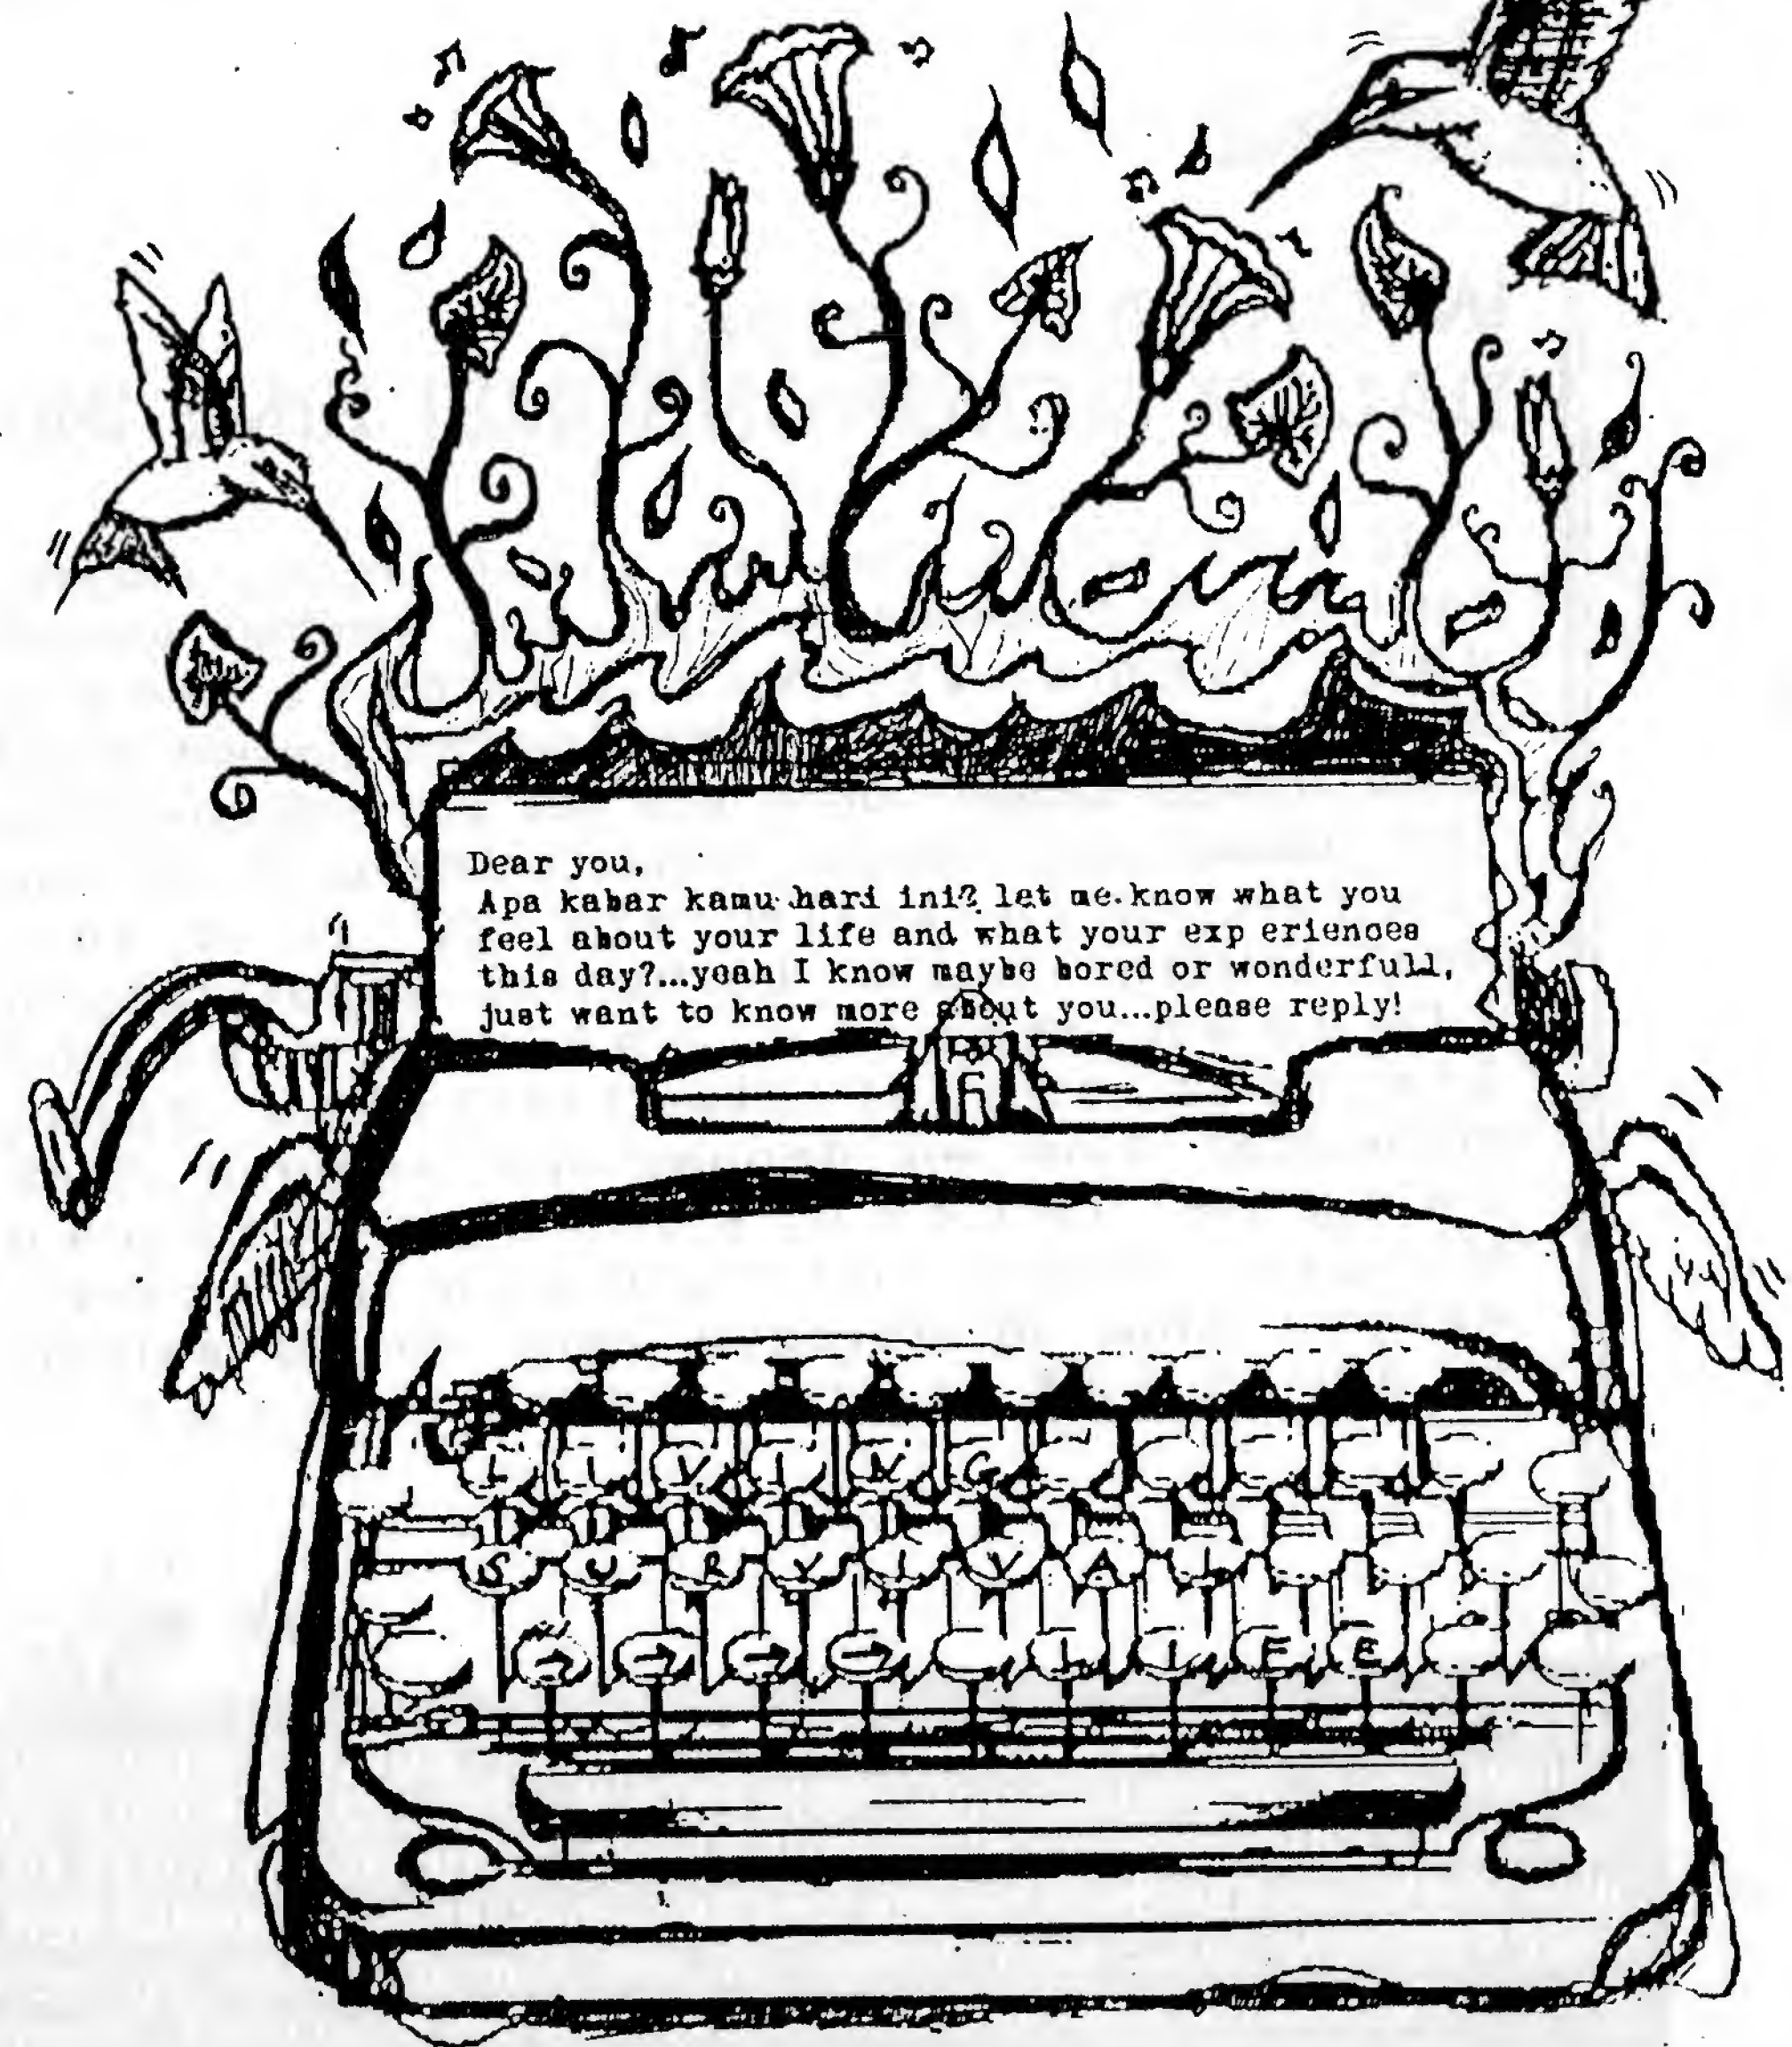 Dear you,
Apa kabar kamu hari ini? let me know what you
feel about your life and what your exp eriences
this day?...yeah I know maybe bored or wonderfull,
just want to know more about you...please reply!
LIVING
SURVIVAL
LIFE